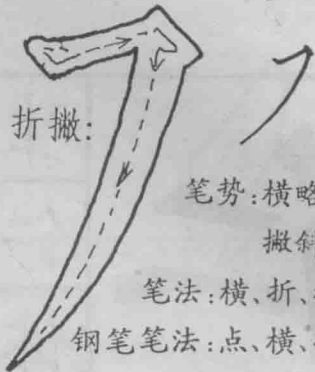 折撇:
笔势:横略
撇斜
笔法:横、折、
钢笔笔法:点、横、